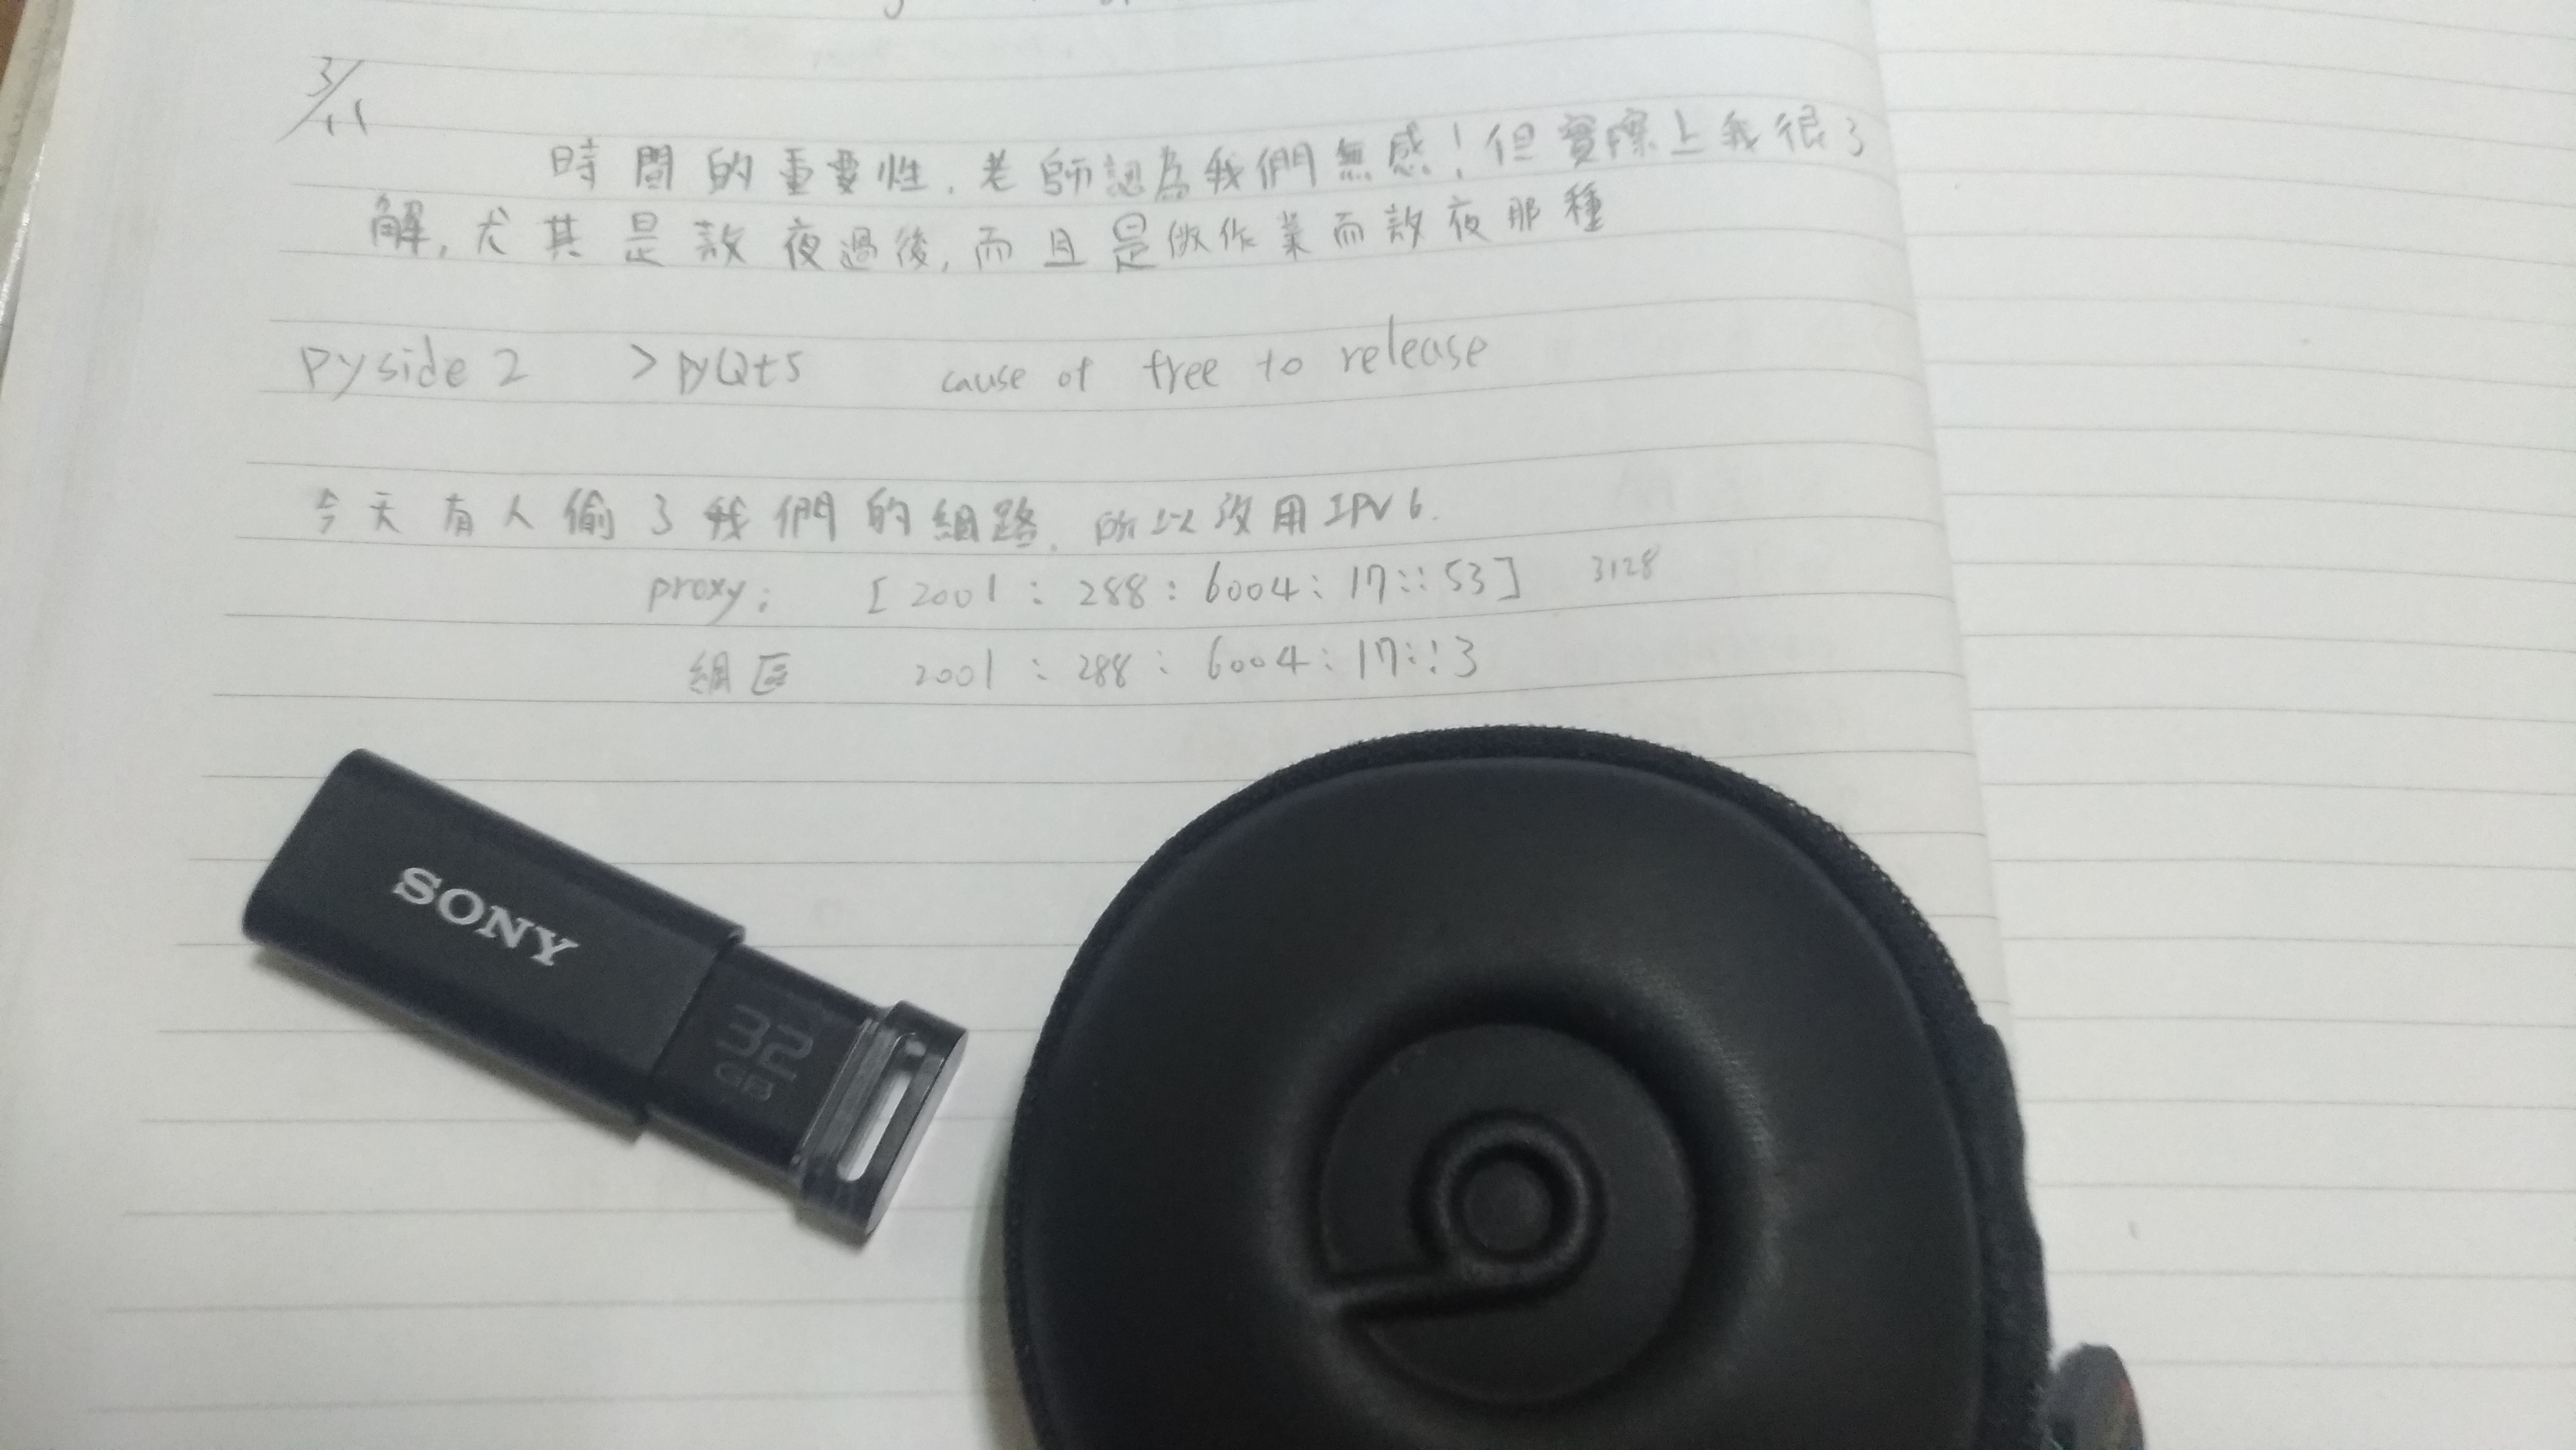 3/11
時間的重要性,老師認為我們無感!但實際上我很了
解,尤其是熬夜過後,而且是做作業而熬夜那種
pyside 2 > pyQt5 cause of free to release
今天有人偷了我們的網路.所以改用IPV6.
proxy: [2001:288:6004:17::53] 3128
網區 2001:288:6004:17::3
SONY
32
GB